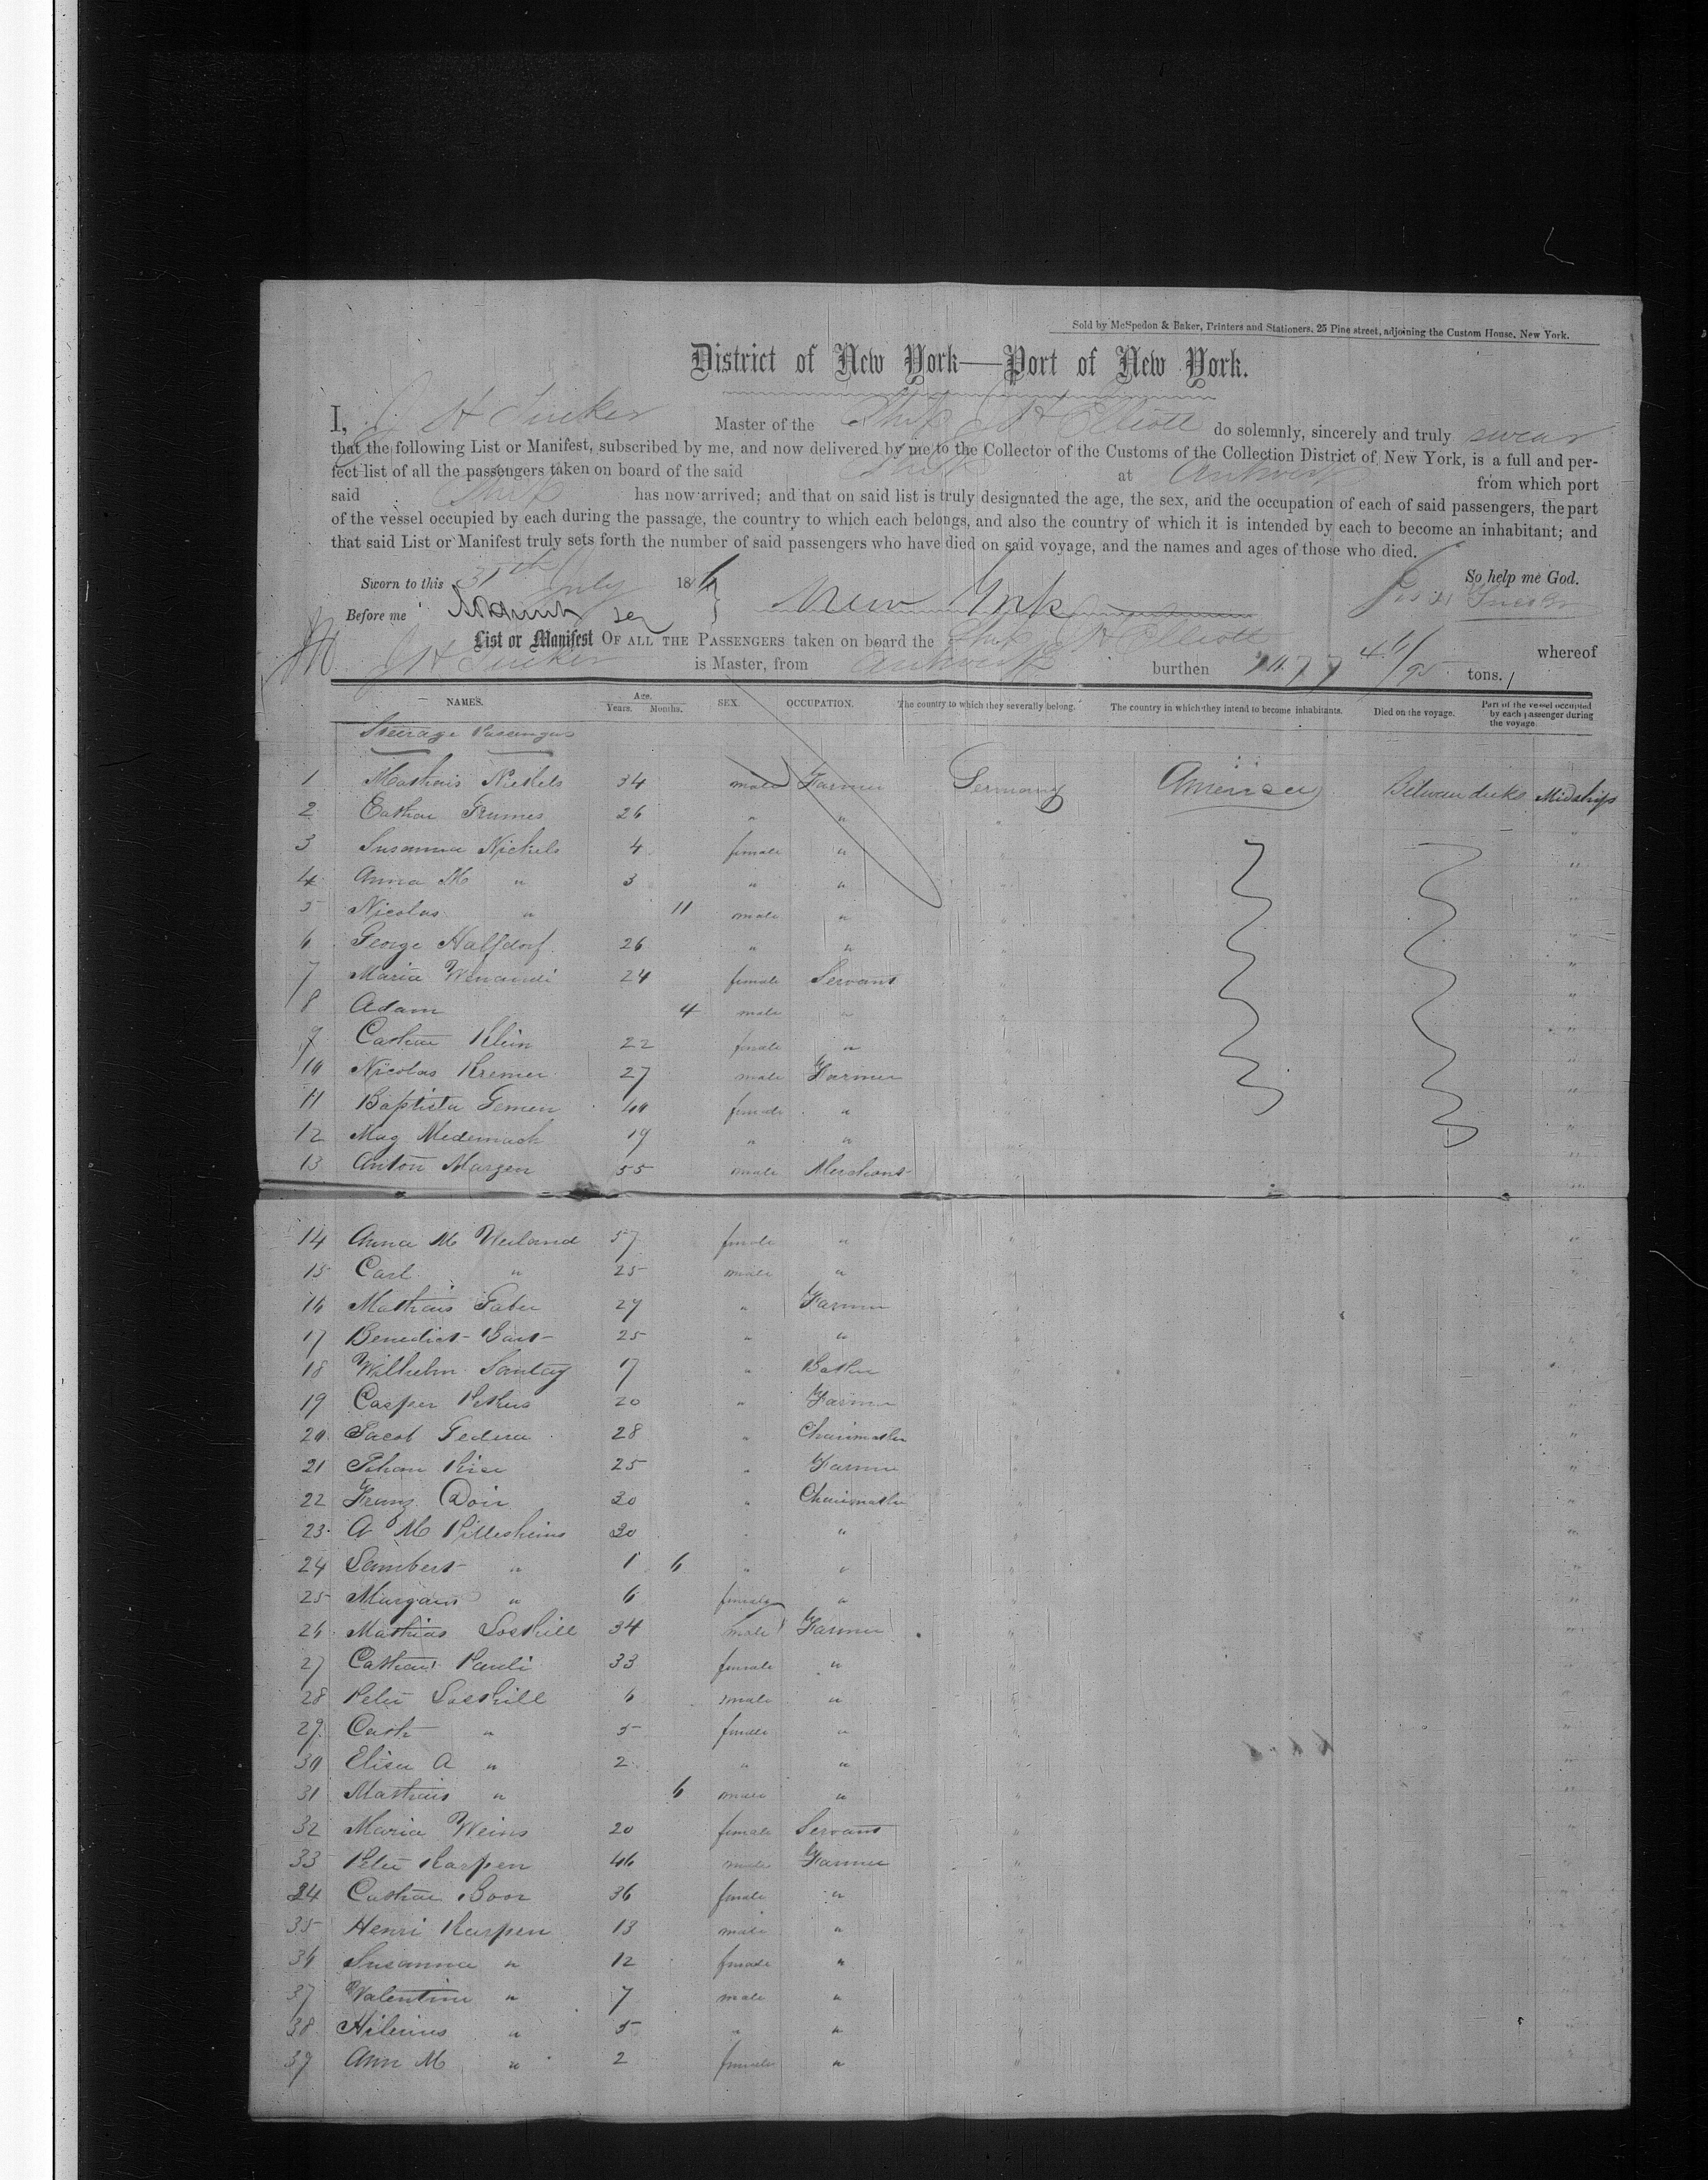 Sold by McSpedon & Baker, Printers and Stationers, 25 Pine street, adjoining the Custom House, New York.
District of New York—Port of New York.
I, J H Tucker Master of the Ship J H Elliott do solemnly, sincerely and truly swear
that the following List or Manifest, subscribed by me, and now delivered by me to the Collector of the Customs of the Collection District of New York, is a full and per-
fect list of all the passengers taken on board of the said Ship at Antwerp from which port
said Ship has now arrived; and that on said list is truly designated the age, the sex, and the occupation of each of said passengers, the part
of the vessel occupied by each during the passage, the country to which each belongs, and also the country of which it is intended by each to become an inhabitant; and
that said List or Manifest truly sets forth the number of said passengers who have died on said voyage, and the names and ages of those who died.
Sworn to this 31th July 18 So help me God.
Before me New York
List or Manifest OF ALL THE PASSENGERS taken on board the Ship J H Elliott whereof
J H Tucker is Master, from Antwerp burthen tons.
NAMES. Age. Years. Months. SEX. OCCUPATION. The country to which they severally belong. The country in which they intend to become inhabitants. Died on the voyage. Part of the vessel occupied by each passenger during the voyage.
Steerage Passengers
1 Mathais Nickels 34 male Farmer Germany America Between decks Midships
2 Cathar Frumes 26 " " "
3 Susanna Nickels 4 female "
4 Anna M " 3 " "
5 Nicolas " 11 male "
6 George Halfdorf 26 " "
7 Maria Wenandi 24 female Servant
8 Adam 4 male "
9 Cathar Klein 22 female "
10 Nicolas Kremer 27 male Farmer
11 Baptista Gemen 40 female "
12 Mag Medernach 19 " "
13 Anton Margen 55 male Merchant
14 Anna M Weiland 57 female "
15 Carl " 25 male "
16 Mathais Faber 29 " Farmer
17 Benedict 25 " "
18 Wilhelm Santag 17 "
19 Casper 20 " Farmer
20 Jacob 28 " Chairmaker
21 Johan 25 " Farmer
22 Franz Doir 30 " Chairmaker
23 A M Hillesheims 30 "
24 Lambert " 1 6 " "
25 " 6 female "
26 Mathias Loskill 34 male Farmer
27 Cathar Pauli 33 female "
28 Peter Loskill 6 male "
29 Cath " 5 female "
30 Elise A " 2 " "
31 Mathais " 6 male "
32 Maria Weins 20 female Servant
33 Peter Karpen 46 male Farmer
34 Cathar Boor 36 female "
35 Henri Karpen 13 male "
36 Susanna " 12 female "
37 Valentine " 7 male "
38 " 5 " "
39 Ann M " 2 female "